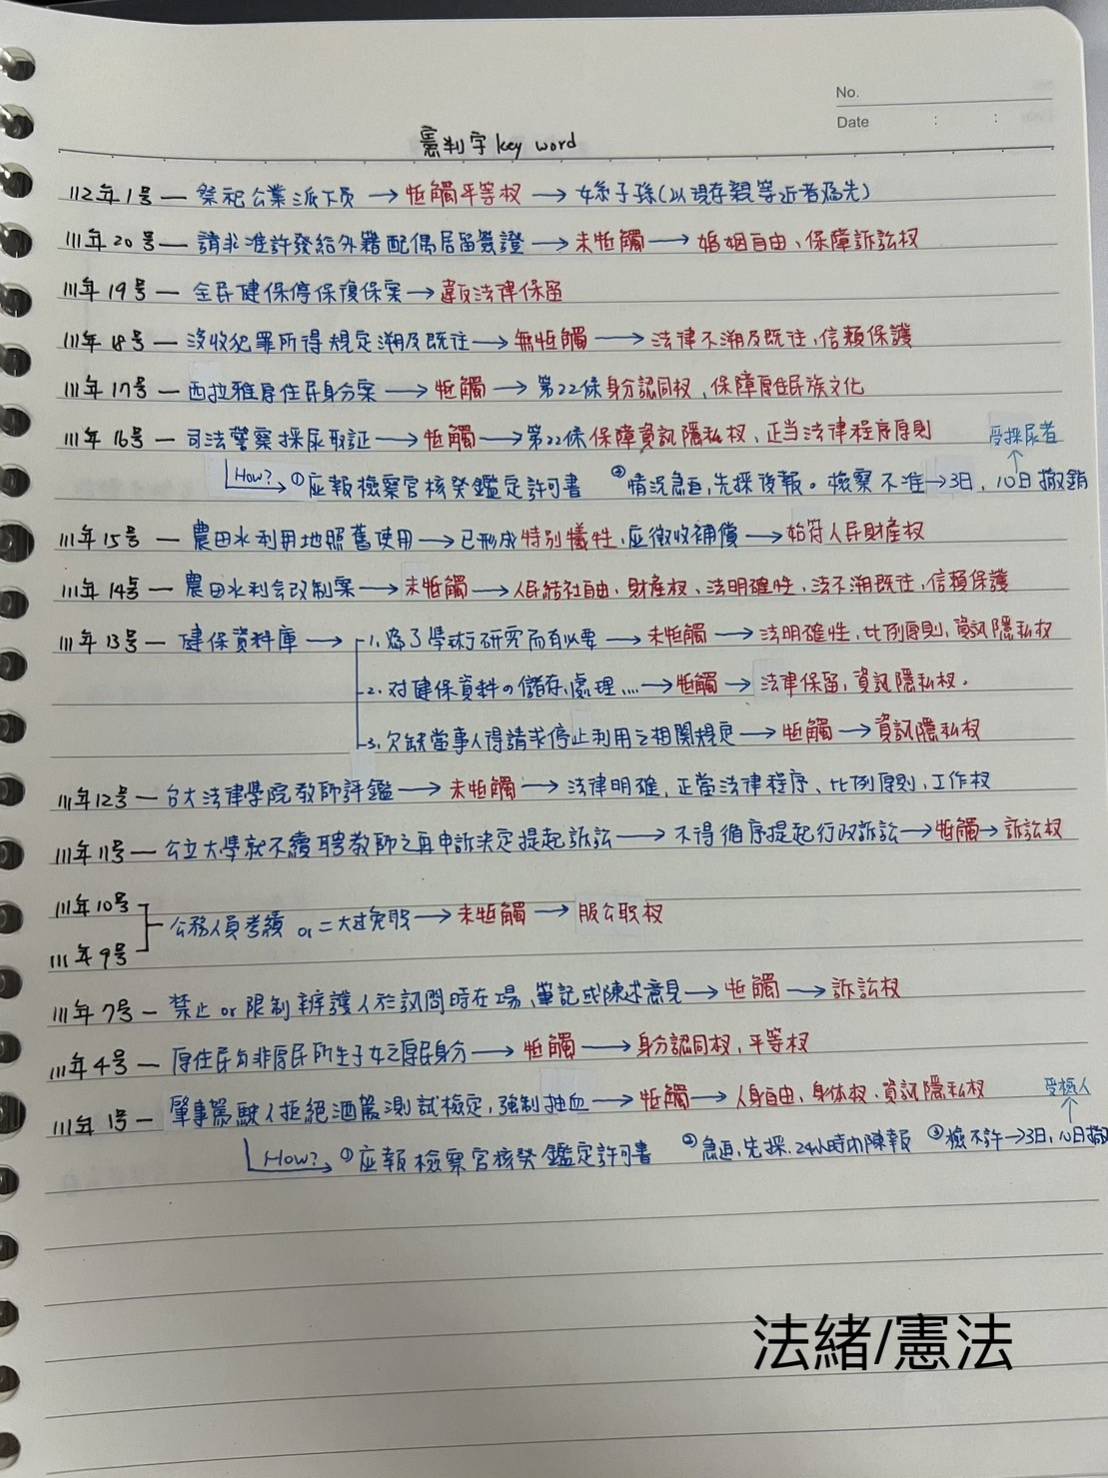 No.
Date : :
憲判字 key word
112年1号 — 祭祀公業派下員 → 牴觸平等权 → 女系子孫(以現存親等近者為先)
111年20号 — 請求准許發給外籍配偶居留簽證 → 未牴觸 → 婚姻自由、保障訴訟权
111年19号 — 全民健保停保復保案 → 違反法律保留
111年18号 — 沒收犯罪所得規定溯及既往 → 無牴觸 → 法律不溯及既往,信賴保護
111年17号 — 西拉雅原住民身分案 → 牴觸 → 第22條身分認同权、保障原住民族文化
111年16号 — 司法警察採尿取証 → 牴觸 → 第22條保障資訊隱私权、正当法律程序原則
受採尿者
How? → ①应報檢察官核癸鑑定許可書 ②情況急迫,先採後報。檢察不准→3日,10日撤銷
111年15号 — 農田水利用地照舊使用 → 已形成特別犧牲,应徵收補償 → 始符人民財產权
111年14号 — 農田水利会改制案 → 未牴觸 → 人民結社自由、財產权、法明確性、法不溯既往,信賴保護
111年13号 — 健保資料庫 → 1. 為了學術研究而有必要 → 未牴觸 → 法明確性,比例原則,資訊隱私权
2. 对健保資料の儲存、處理… → 牴觸 → 法律保留,資訊隱私权.
3. 欠缺當事人得請求停止利用之相關規定 → 牴觸 → 資訊隱私权
111年12号 — 台大法律學院教師評鑑 → 未牴觸 → 法律明確,正當法律程序、比例原則,工作权
111年11号 — 公立大學就不續聘教師之再申訴決定提起訴訟 → 不得循序提起行政訴訟 → 牴觸 → 訴訟权
111年10号
公務人員考績 or 二大过免职 → 未牴觸 → 服公职权
111年9号
111年7号 — 禁止 or 限制辯護人於訊問時在場、筆記或陳述意見 → 牴觸 → 訴訟权
111年4号 — 原住民与非原民所生子女之原民身分 → 牴觸 → 身分認同权,平等权
111年1号 — 肇事駕駛人拒絕酒駕測試檢定,強制抽血 → 牴觸 → 人身自由、身体权、資訊隱私权
受檢人
How? → ①应報檢察官核癸鑑定許可書 ②急迫,先採.24小時內陳報 ③檢不許→3日,10日撤
法緒/憲法